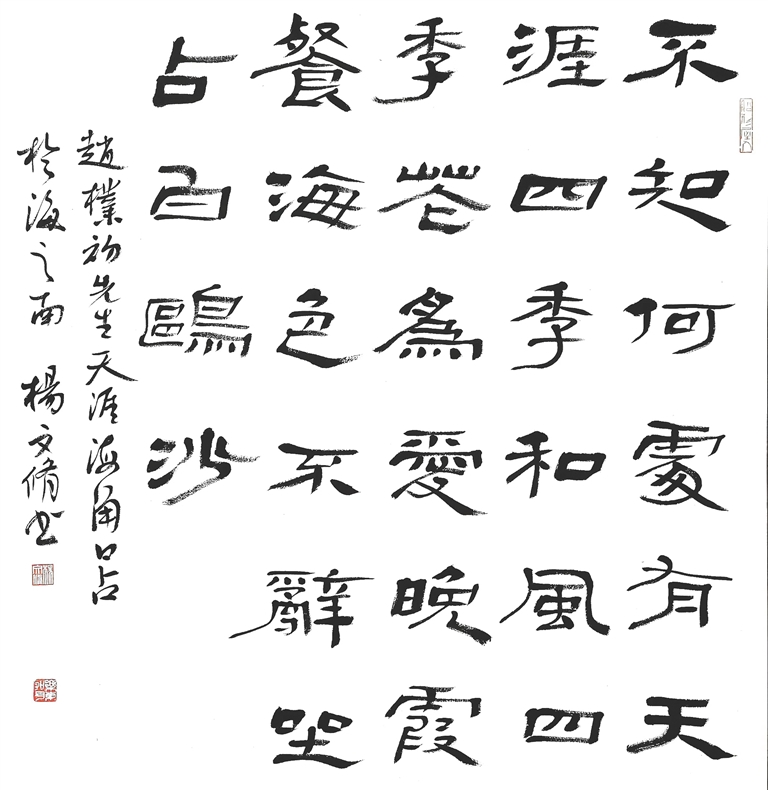 不知何處有天
涯四季和風四
季花為愛晚霞
餐海色不辭坐
占白鷗沙
趙樸初先生天涯海角口占
於海之南 楊文脩書